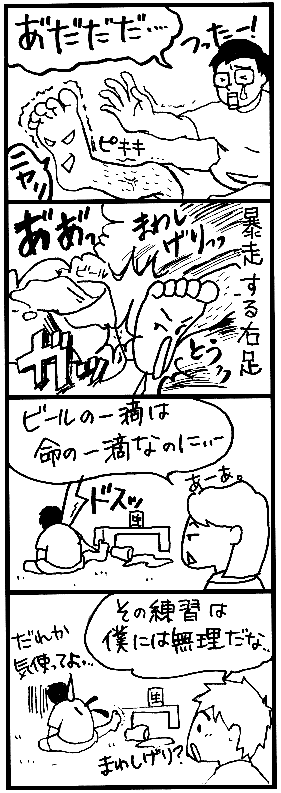 あ゛だだだ‥‥
つったー!
ピキキ
ニヤッ
暴走する右足
まわし
げりっっ
あ゛あ゛っ
ビール
とうっ
ガッ
ビールの一滴は
命の一滴なのにぃー
あーあ。
ドスッ
その練習は
僕には無理だな…
だれか
気使ってよ…
まわしげり?